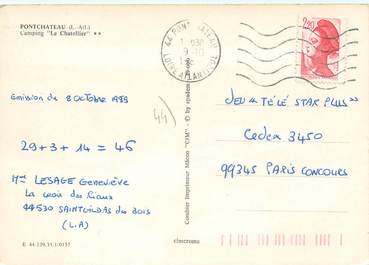 PONTCHATEAU (L.-Atl.)
Camping "Le Chatellier" **
Emission du 8 octobre 1983
29 + 3 + 14 = 46
Mme LESAGE Geneviève
La croix des
44530 SAINT GILDAS des BOIS
(L.A)
E 44.129.51.1.0157
44)
Combier Imprimeur Mâcon "CIM" - © by
cimcromo
44 PONTCHATEAU
9-10
LOIRE ATLANTIQUE
2,00
JEU "TÉLÉ STAR PLUS"
Cedex 3450
99345 PARIS CONCOURS